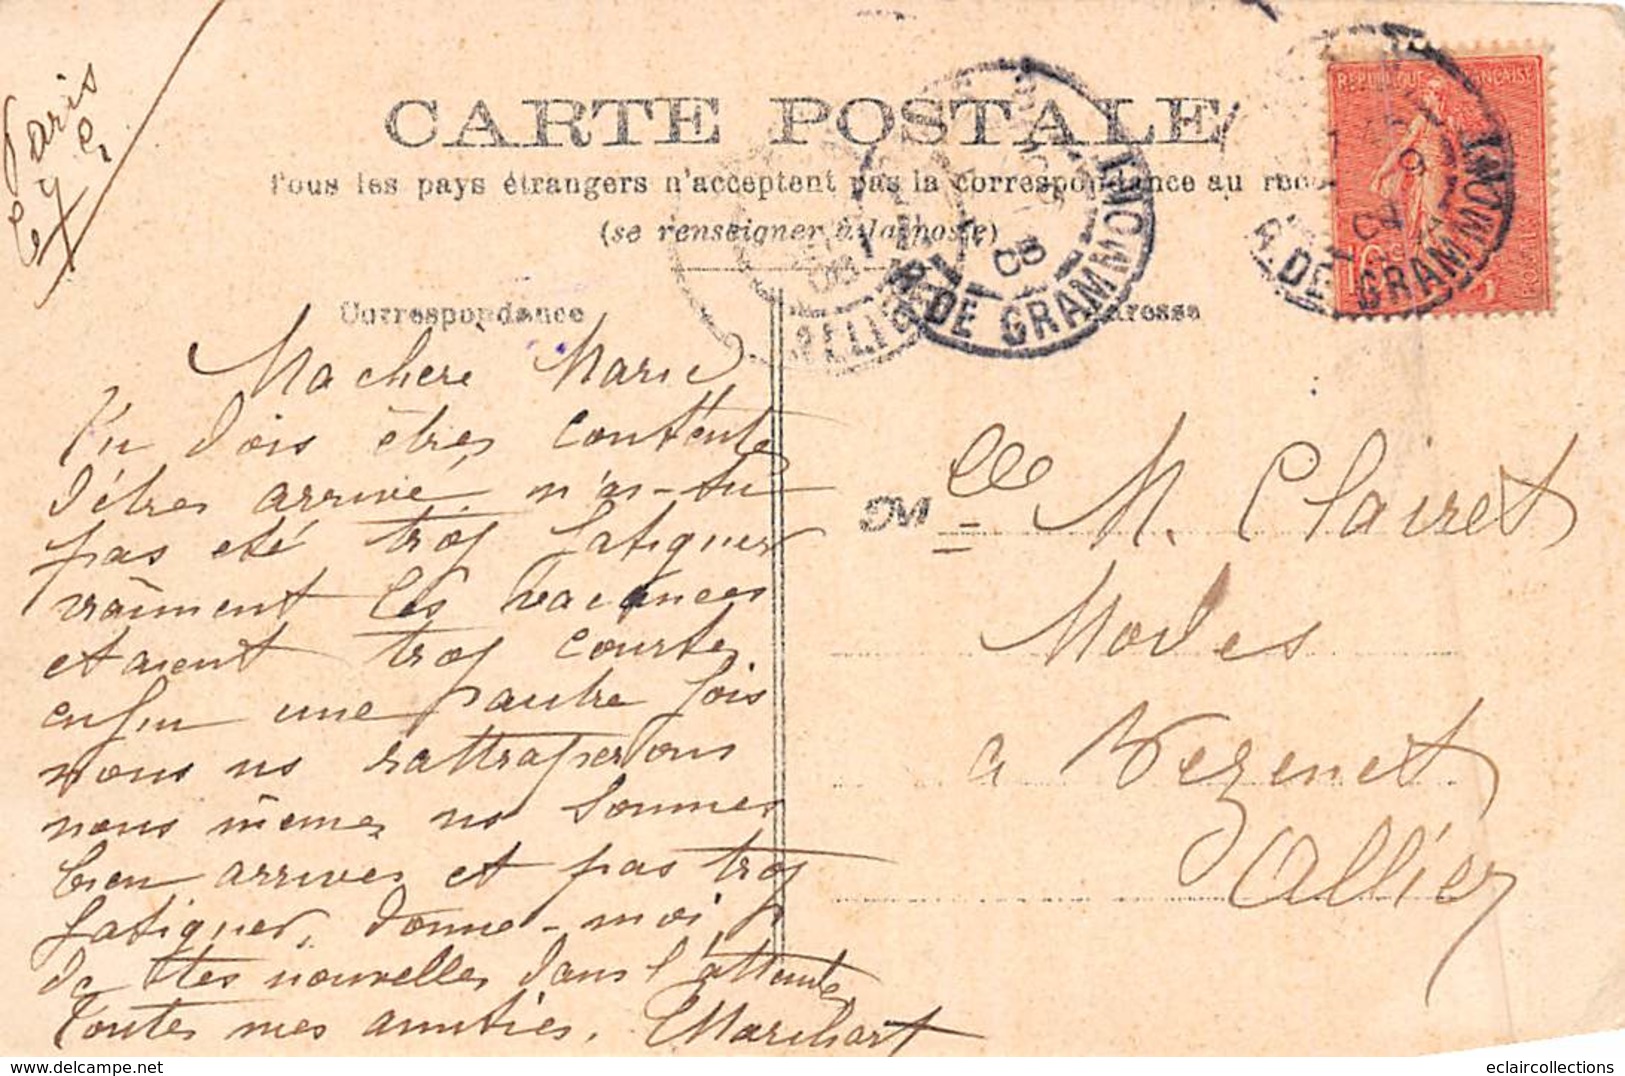 Paris
le 9
CARTE POSTALE
Tous les pays étrangers n'acceptent pas la correspondance au
(se renseigner à la poste)
Correspondance
Adresse
REPUBLIQUE FRANÇAISE
10
POSTES
R. DE GRAMMONT
R. DE GRAMMONT
08
Ma chere Marie
Tu dois êtres contente
d'êtres arrivé, n'as-tu
pas eté trop fatiguer
vraiment les vacances
etaient trop courtes
enfin une autre fois
nous ns rattraperons
nous mêmes ns sommes
bien arrives et pas trop
fatiguer, donne-moi
de ttes nouvelles dans l'attende
toutes mes amitiés. Marchart
Mlle M. Clairet
Modes
a Vezenet
Allier
eclaircollections